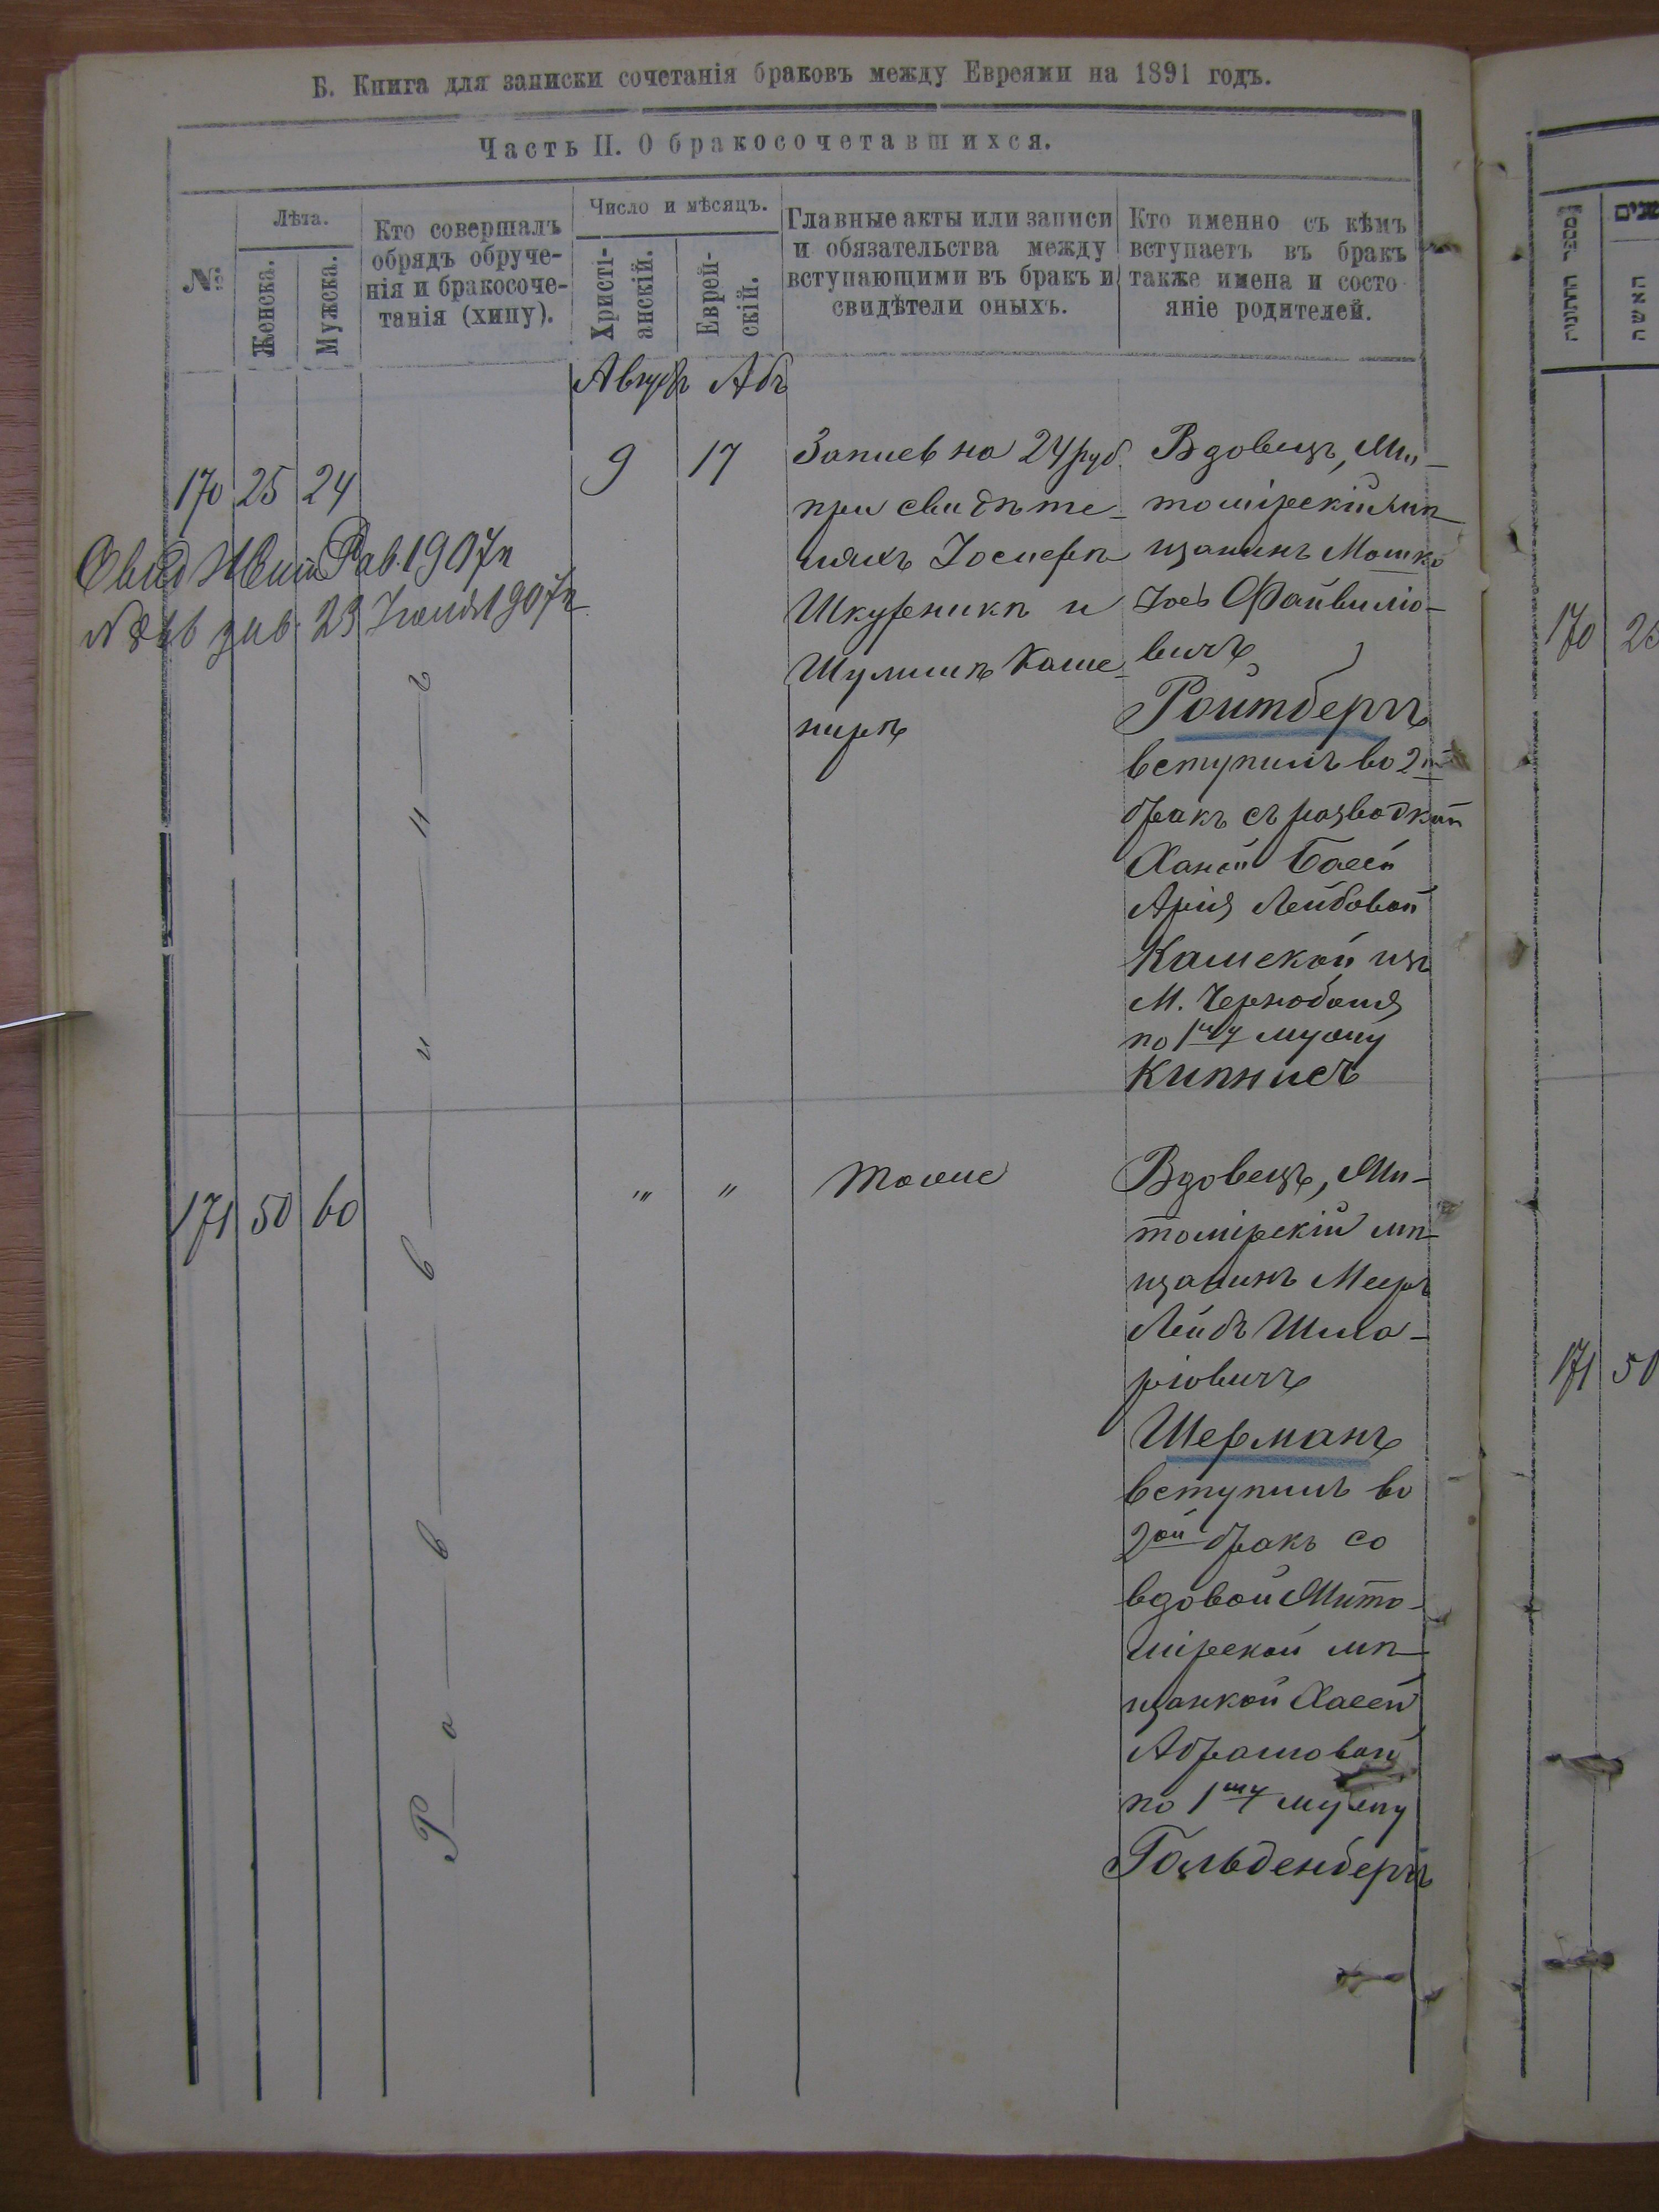 Б. Книга для записки сочетанія браковъ между Евреями на 1891 годъ.
Часть II. О бракосочетавшихся.
№
Лѣта.
Женска.
Мужска.
Кто совершалъ
обрядъ обруче-
нія и бракосоче-
танія (хипу).
Число и мѣсяцъ.
Христі-
анскій.
Еврей-
скій.
Главные акты или записи
и обязательства между
вступающими въ бракъ и
свидѣтели оныхъ.
Кто именно съ кѣмъ
вступаетъ въ бракъ
также имена и состо
яніе родителей.
Августъ Абъ
170 25 24
9 17
Запись на 24 руб.
при свидѣте-
ляхъ Іосифѣ
Шкурникѣ и
Шулимѣ Каше-
нирѣ
Вдовецъ, Жи-
томірскій мѣ-
щанинъ Мошко
Іось Файвило-
вичъ
Ройтбергъ
вступилъ во 2й
бракъ съ разводкой
Ханой Басей
Арія Лейбовой
Камской изъ
М. Чернобыля
по 1му мужу
Кипнисъ
23 Іюня 1907г.
Раввинъ
171 50 60
"' "
тоже
Вдовецъ, Жи-
томірскій мѣ-
щанинъ Мееръ
Лейбъ Шма-
ріовичъ
Шерманъ
вступилъ во
2ой бракъ со
вдовой Жито-
мірской мѣ-
щанкой Хасей
Абрамовой
по 1му мужу
Гольденбергъ
מספר החתונה
שנים
האשה
170 25
171 50